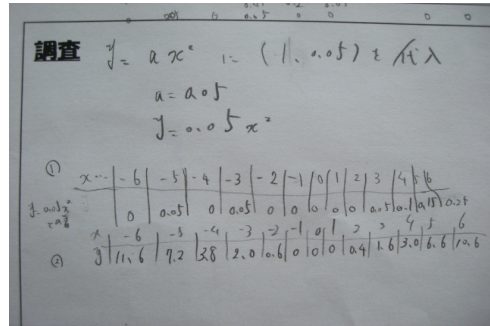 調査 y = ax² に (1, 0.05) を代入
a = 0.05
y = 0.05x²
① x … -6 -5 -4 -3 -2 -1 0 1 2 3 4 5 6
0 0.05 0 0.05 0 0 0 0 0 0.05 0.1 0.15 0.25
② x -6 -5 -4 -3 -2 -1 0 1 2 3 4 5 6
y 11.6 7.2 3.8 2.0 0.6 0 0 0 0.4 1.6 3.0 6.6 10.6